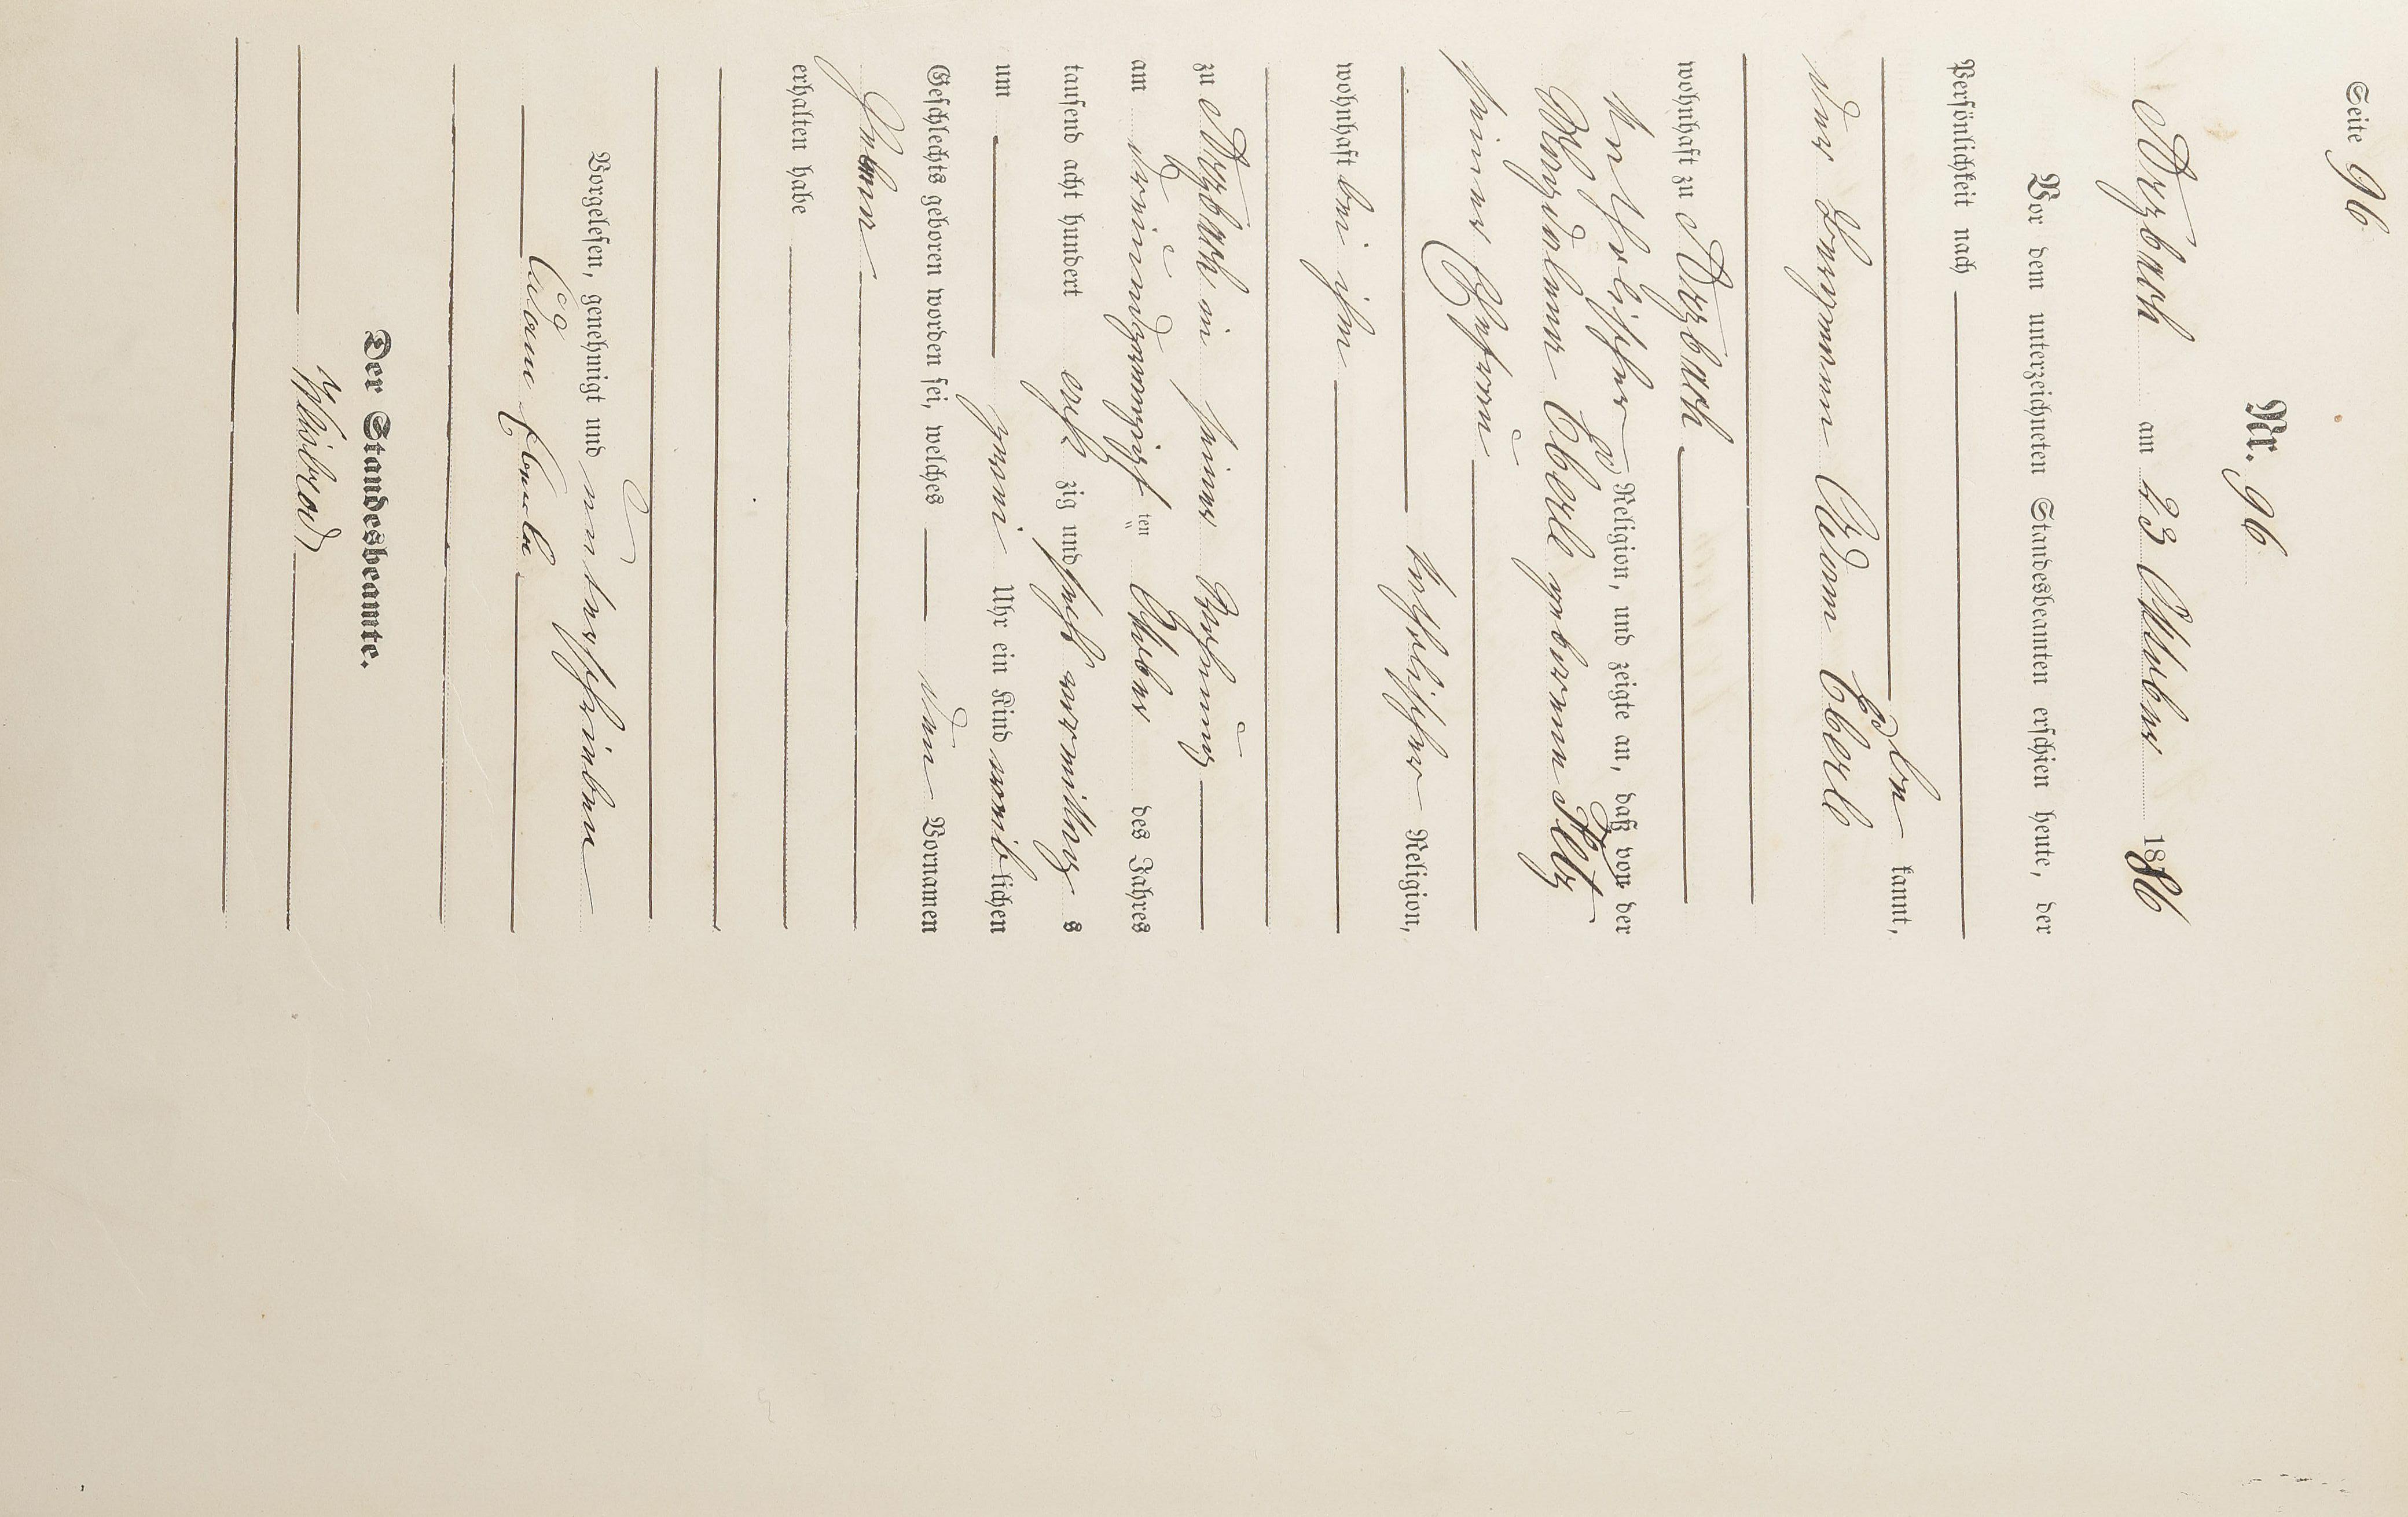 Seite 96
Nr. 96
Arzbach am 23 Oktober 1886
Vor dem unterzeichneten Standesbeamten erschien heute, der
Persönlichkeit nach
kannt,
der Bergmann Adam Eberl
wohnhaft zu Arzbach
katholischer Religion, und zeigte an, daß von der
Magdalena Eberl geborene Metz
seiner Ehefrau
katholischer Religion,
wohnhaft bei ihm
zu Arzbach in seiner Wohnung
am dreiundzwanzigsten Oktober des Jahres
tausend acht hundert achtzig und sechs vormittags
um zwei Uhr ein Kind weiblichen
Geschlechts geboren worden sei, welches den Vornamen
erhalten habe
Vorgelesen, genehmigt und unterschrieben
Adam
Der Standesbeamte.